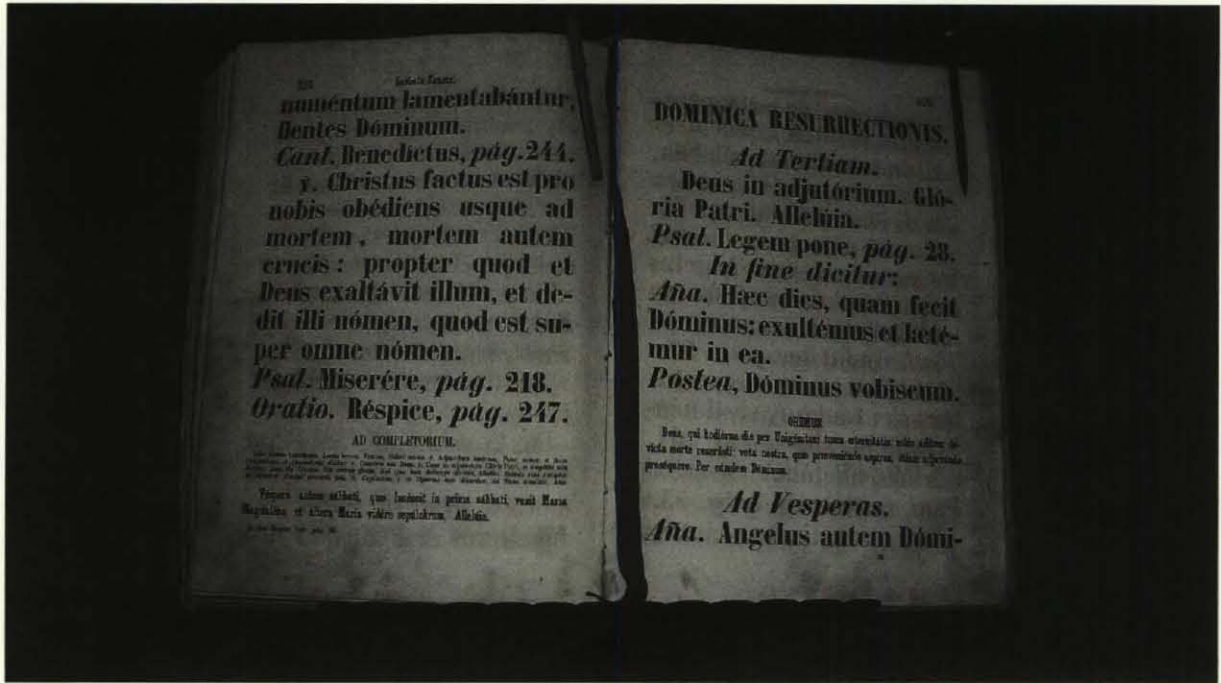 numéntum lamentabántur,
flentes Dóminum.
Cant. Benedíctus, pág. 244.
ṽ. Christus factus est pro
nobis obédiens usque ad
mortem, mortem autem
crucis: propter quod et
Deus exaltávit illum, et de-
dit illi nómen, quod est su-
per omne nómen.
Psal. Miserére, pág. 218.
Oratio. Réspice, pág. 247.
AD COMPLETORIUM.
Véspere autem sábbati, quæ lucéscit in prima sábbati, venit Maria
Magdaléne, et áltera Maria vidére sepulchrum. Allelúia.
DOMINICA RESURRECTIONIS.
Ad Tertiam.
Deus in adjutórium. Gló-
ria Patri. Allelúia.
Psal. Legem pone, pág. 28.
In fine dicitur:
Aña. Hæc dies, quam fecit
Dóminus: exultémus et læté-
mur in ea.
Postea, Dóminus vobiscum.
OREMUS
Deus, qui hodiérna die per Unigénitum tuum æternitátis nobis áditum de-
vícta morte reserásti: vota nostra, quæ præveniéndo aspíras, étiam adjuvándo
proséquere. Per eúmdem Dóminum.
Ad Vesperas.
Aña. Angelus autem Dómi-